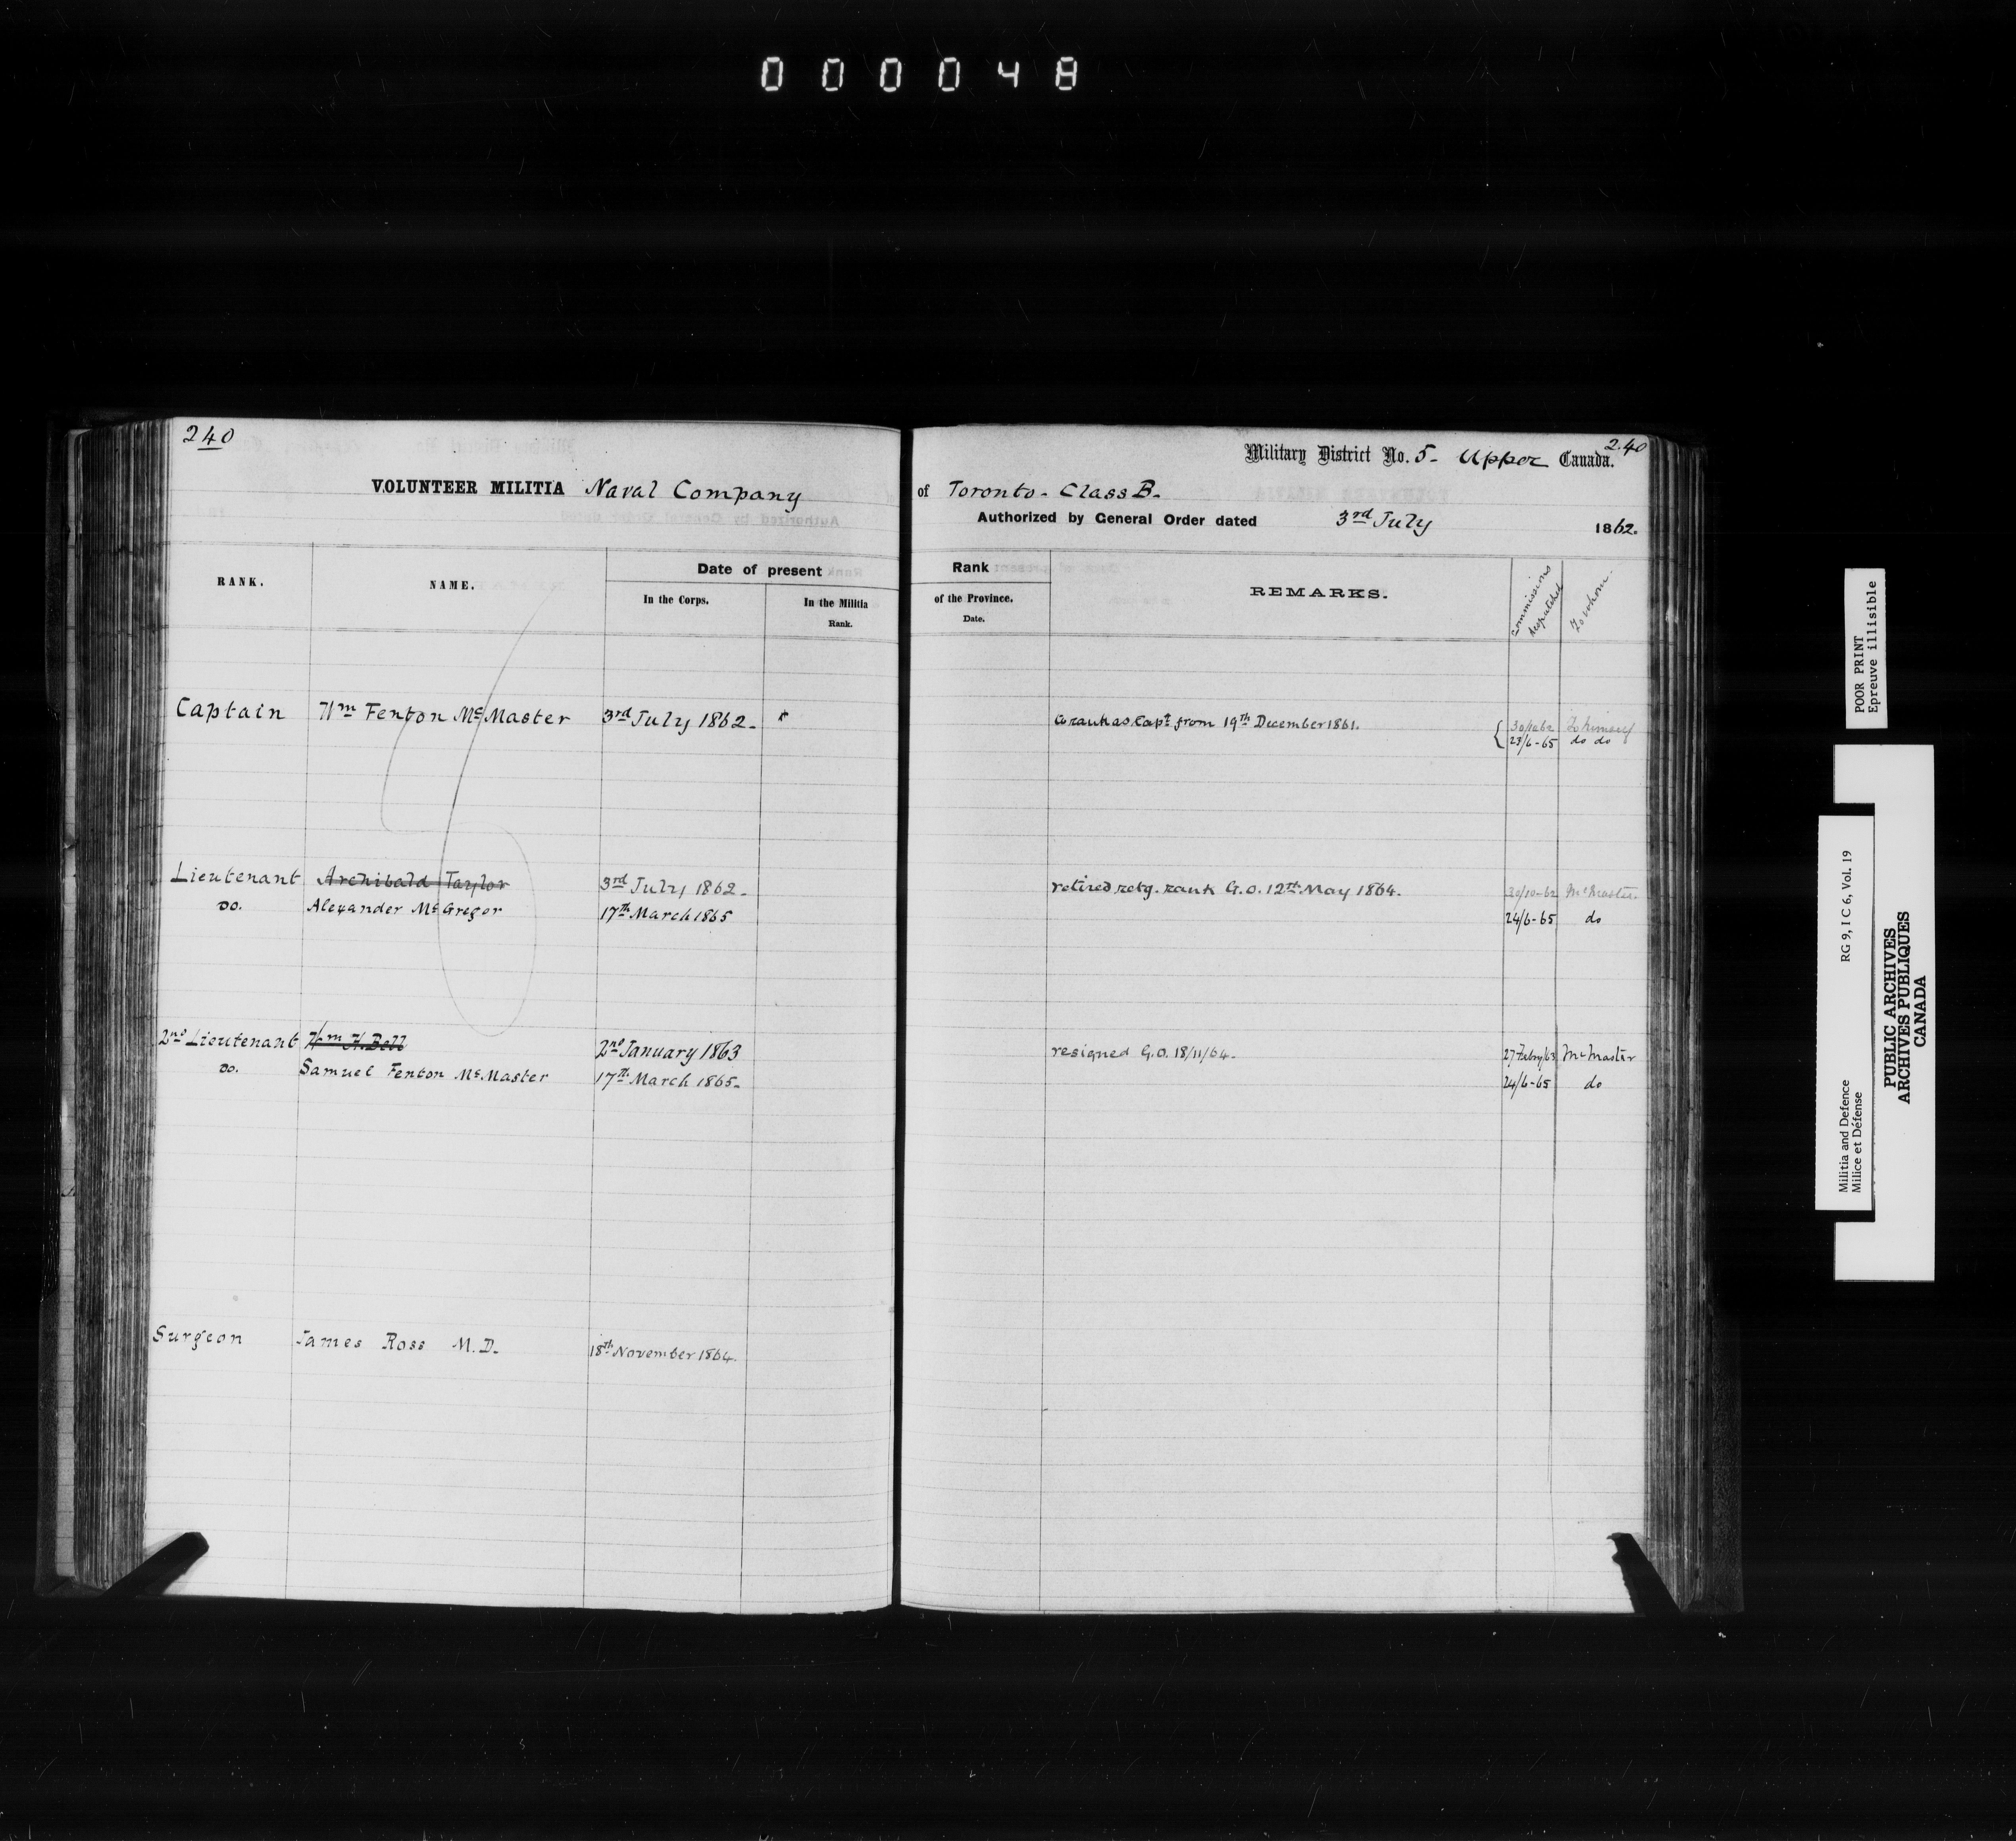 000048
240
VOLUNTEER MILITIA Naval Company
RANK.
NAME.
Date of present
In the Corps.
In the Militia
Rank.
Captain Wm Fenton McMaster 3rd July 1862-
Lieutenant Archibald Taylor 3rd July 1862-
Do. Alexander McGregor 17th March 1865
2nd Lieutenant Wm H. Bell 2nd January 1863
Do. Samuel Fenton McMaster 17th March 1865-
Surgeon James Ross M.D. 18th November 1864.
240
Military District No. 5- Upper Canada.
of Toronto- Class B-
Authorized by General Order dated 3rd July 1862.
Rank
of the Province.
Date.
REMARKS.
Commissions
despatched
To whom.
to rank as Capt from 19th December 1861. 30/10 62 To himself
23/6-65 do do
retired retg. rank G.O. 12th May 1864. 30/10-62 McMaster
24/6-65 do
resigned G.O. 18/11/64- 27 Febry/63 McMaster
24/6-65 do
POOR PRINT
Epreuve illisible
Militia and Defence RG 9, I C 6, Vol. 19
Milice et Défense
PUBLIC ARCHIVES
ARCHIVES PUBLIQUES
CANADA